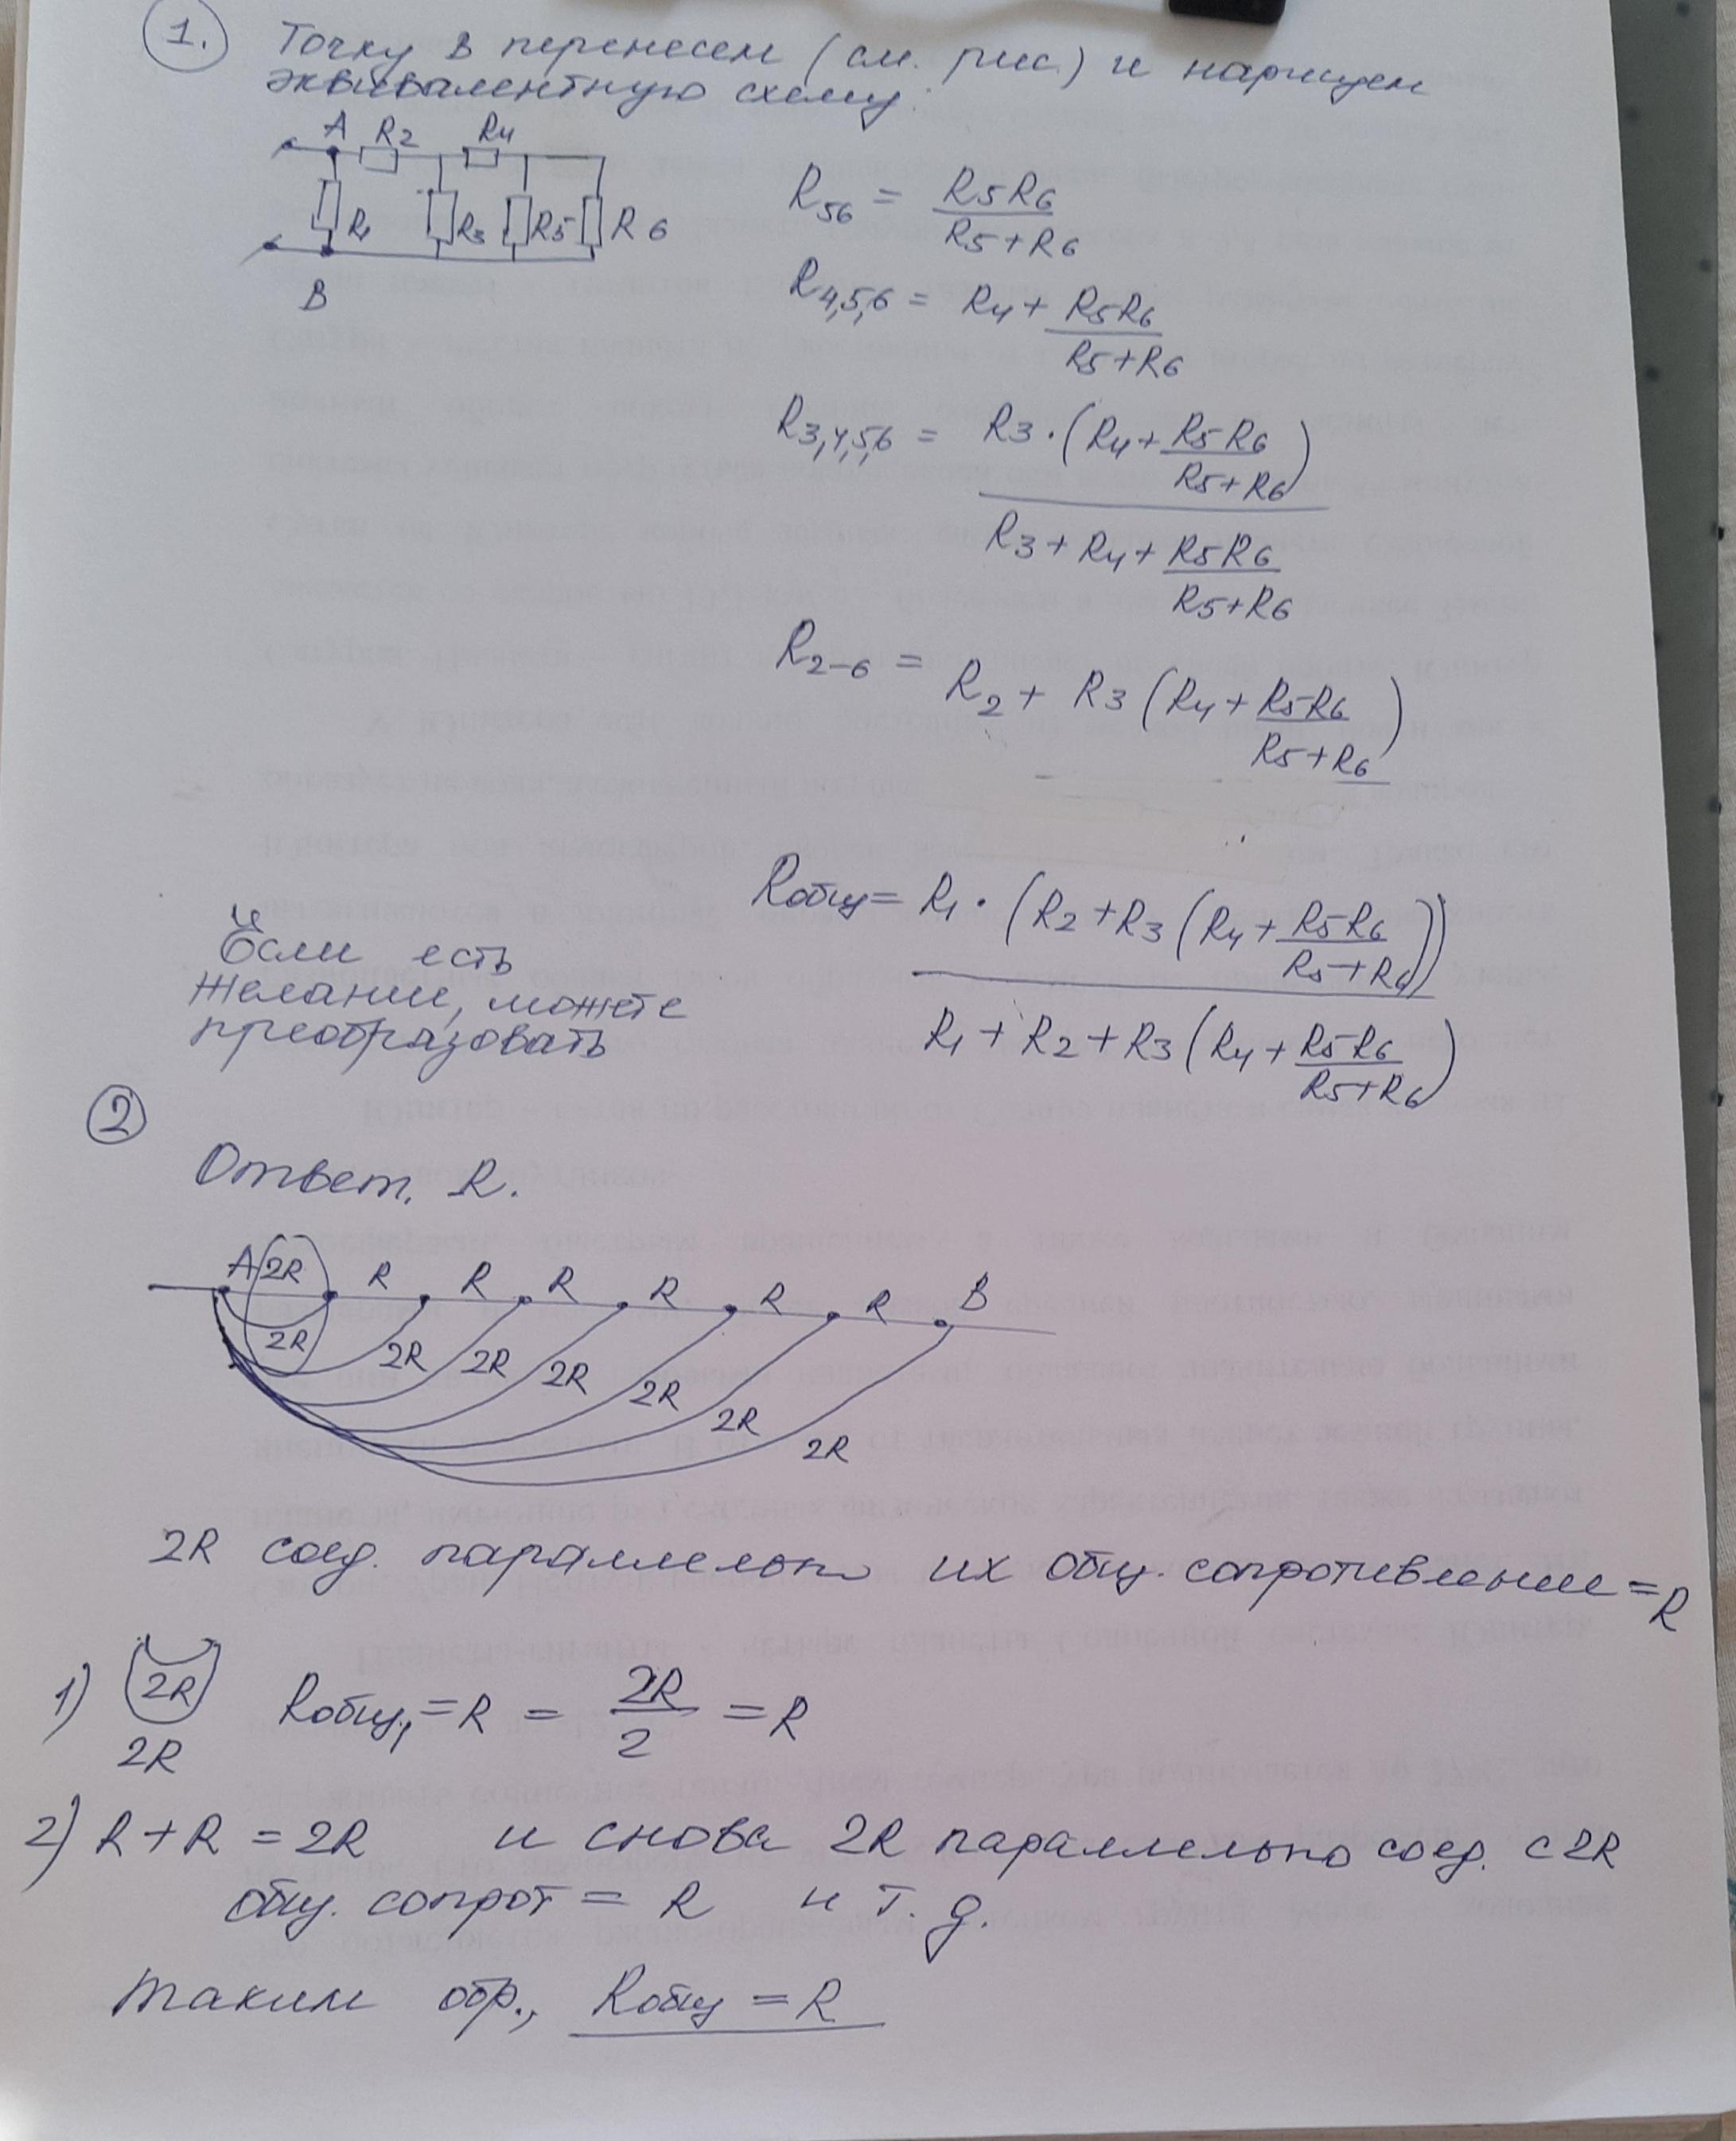 1. Точку В перенесем (см. рис.) и нарисуем
эквивалентную схему:
A R2 R4
R1 R3 R5 R6
B
R56 = R5R6 / R5+R6
R4,5,6 = R4 + R5R6 / R5+R6
R3,4,5,6 = R3·(R4+ R5R6 / R5+R6) / R3+R4+ R5R6 / R5+R6
R2-6 = R2 + R3(R4+ R5R6 / R5+R6)
Rобщ = R1·(R2+R3(R4+ R5R6 / R5+R6)) / R1+R2+R3(R4+ R5R6 / R5+R6)
Если есть
желание, можете
преобразовать
2
Ответ. R.
A 2R R R R R R R B
2R 2R 2R 2R 2R 2R 2R
2R соед. параллельно их общ. сопротивление = R
1) 2R Rобщ,1 = R = 2R / 2 = R
2R
2) R+R = 2R и снова 2R параллельно соед. с 2R
общ. сопрот = R и т. д.
Таким обр., Rобщ = R